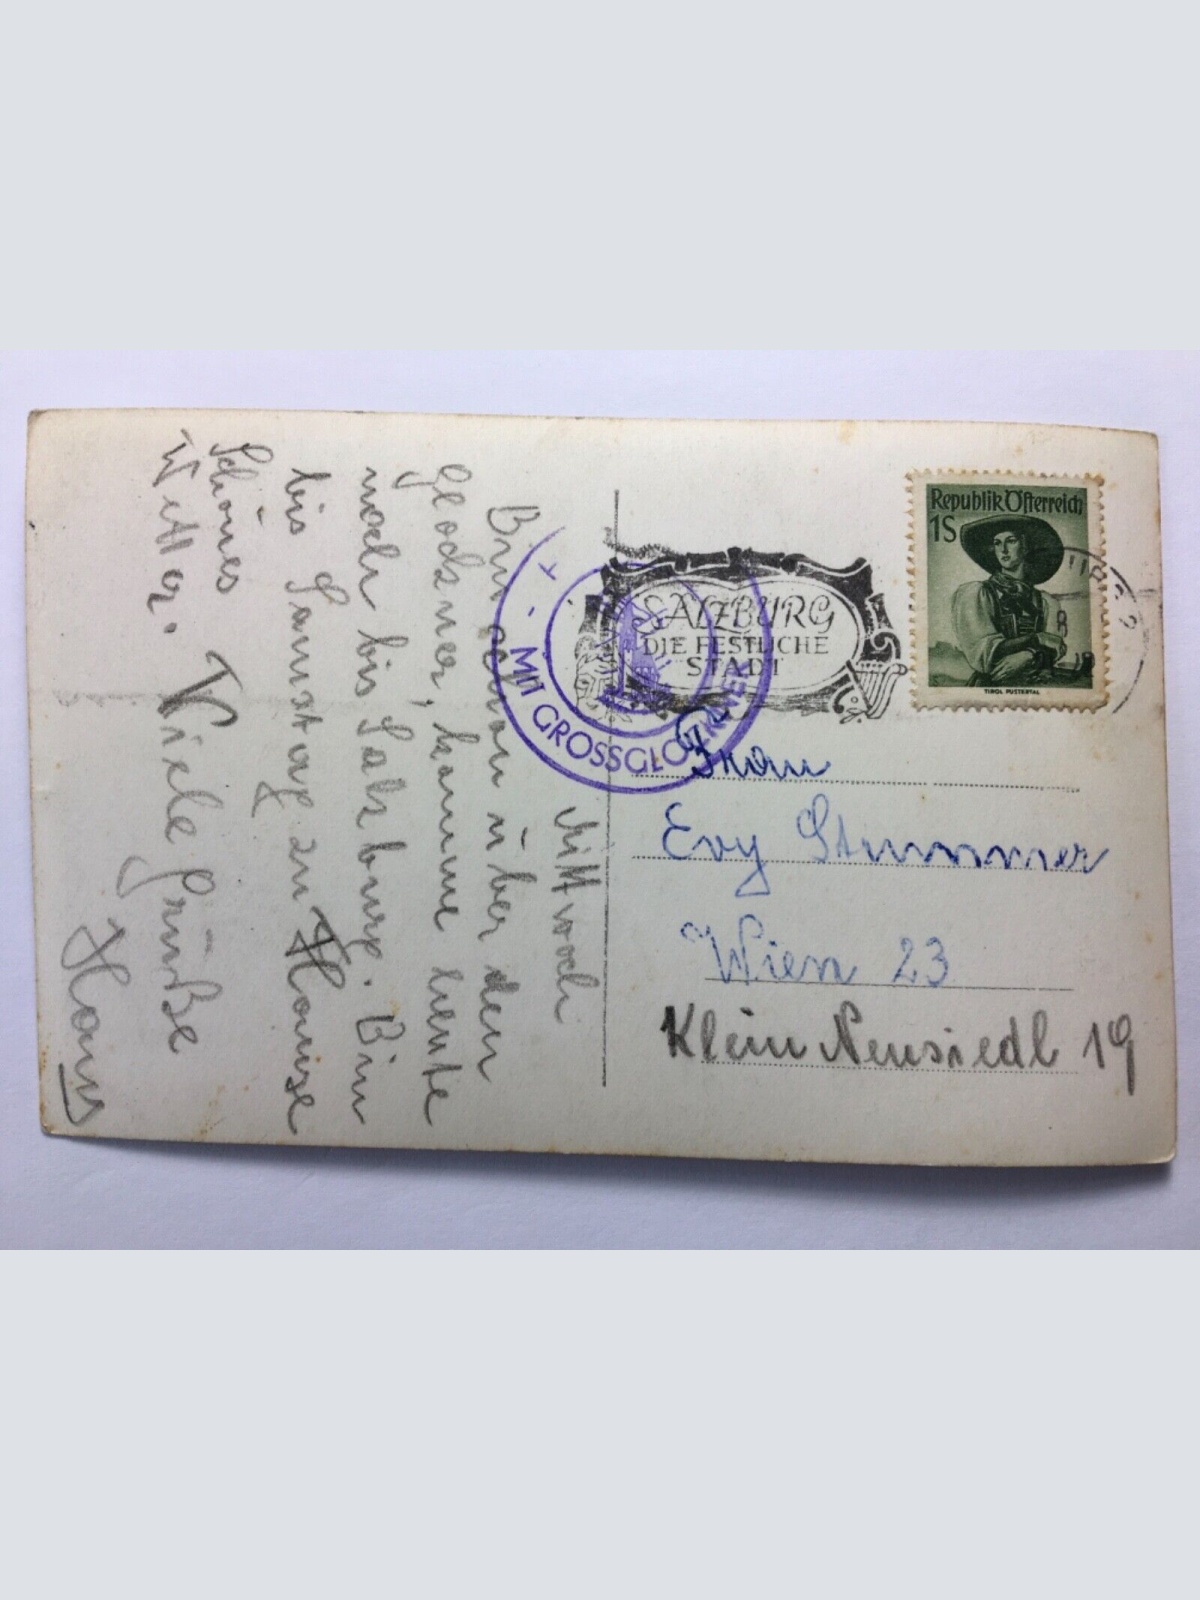 Mittwoch
Bin schon über den
Glockner, komme heute
noch bis Salzburg. Bin
bis Samstag zu Hause
Schönes
Wetter.
Viele Grüße
Hans
MIT GROSSGLOCKNER
SALZBURG
DIE FESTLICHE
STADT
Republik Österreich
1S
TIROL PUSTERTAL
Frau
Evy Stummer
Wien 23
Klein Neusiedl 19